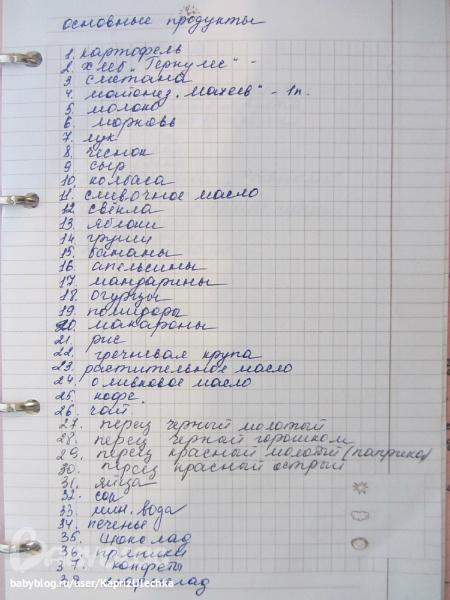 основные продукты
1. картофель
2. хлеб „Геркулес" -
3 сметана
4. майонез „Махеев" - 1п.
5. молоко
6. морковь
7. лук
8. чеснок
9 сыр
10. колбаса
11. сливочное масло
12. свёкла
13. яблоки
14 груши
15. бананы
16. апельсины
17. мандарины
18. огурцы
19. помидоры
20. макароны
21. рис
22. гречневая крупа
23. растительное масло
24. оливковое масло
25. кофе.
26. чай
27. перец черный молотый
28. перец черный горошком
29. перец красный молотый (паприка)
30. перец красный острый
31. яйца
32. сок
33. мин. вода
34. печенье
35. шоколад
36. пряники
37. конфеты
38.
babyblog.ru/user/KaprizUlechka